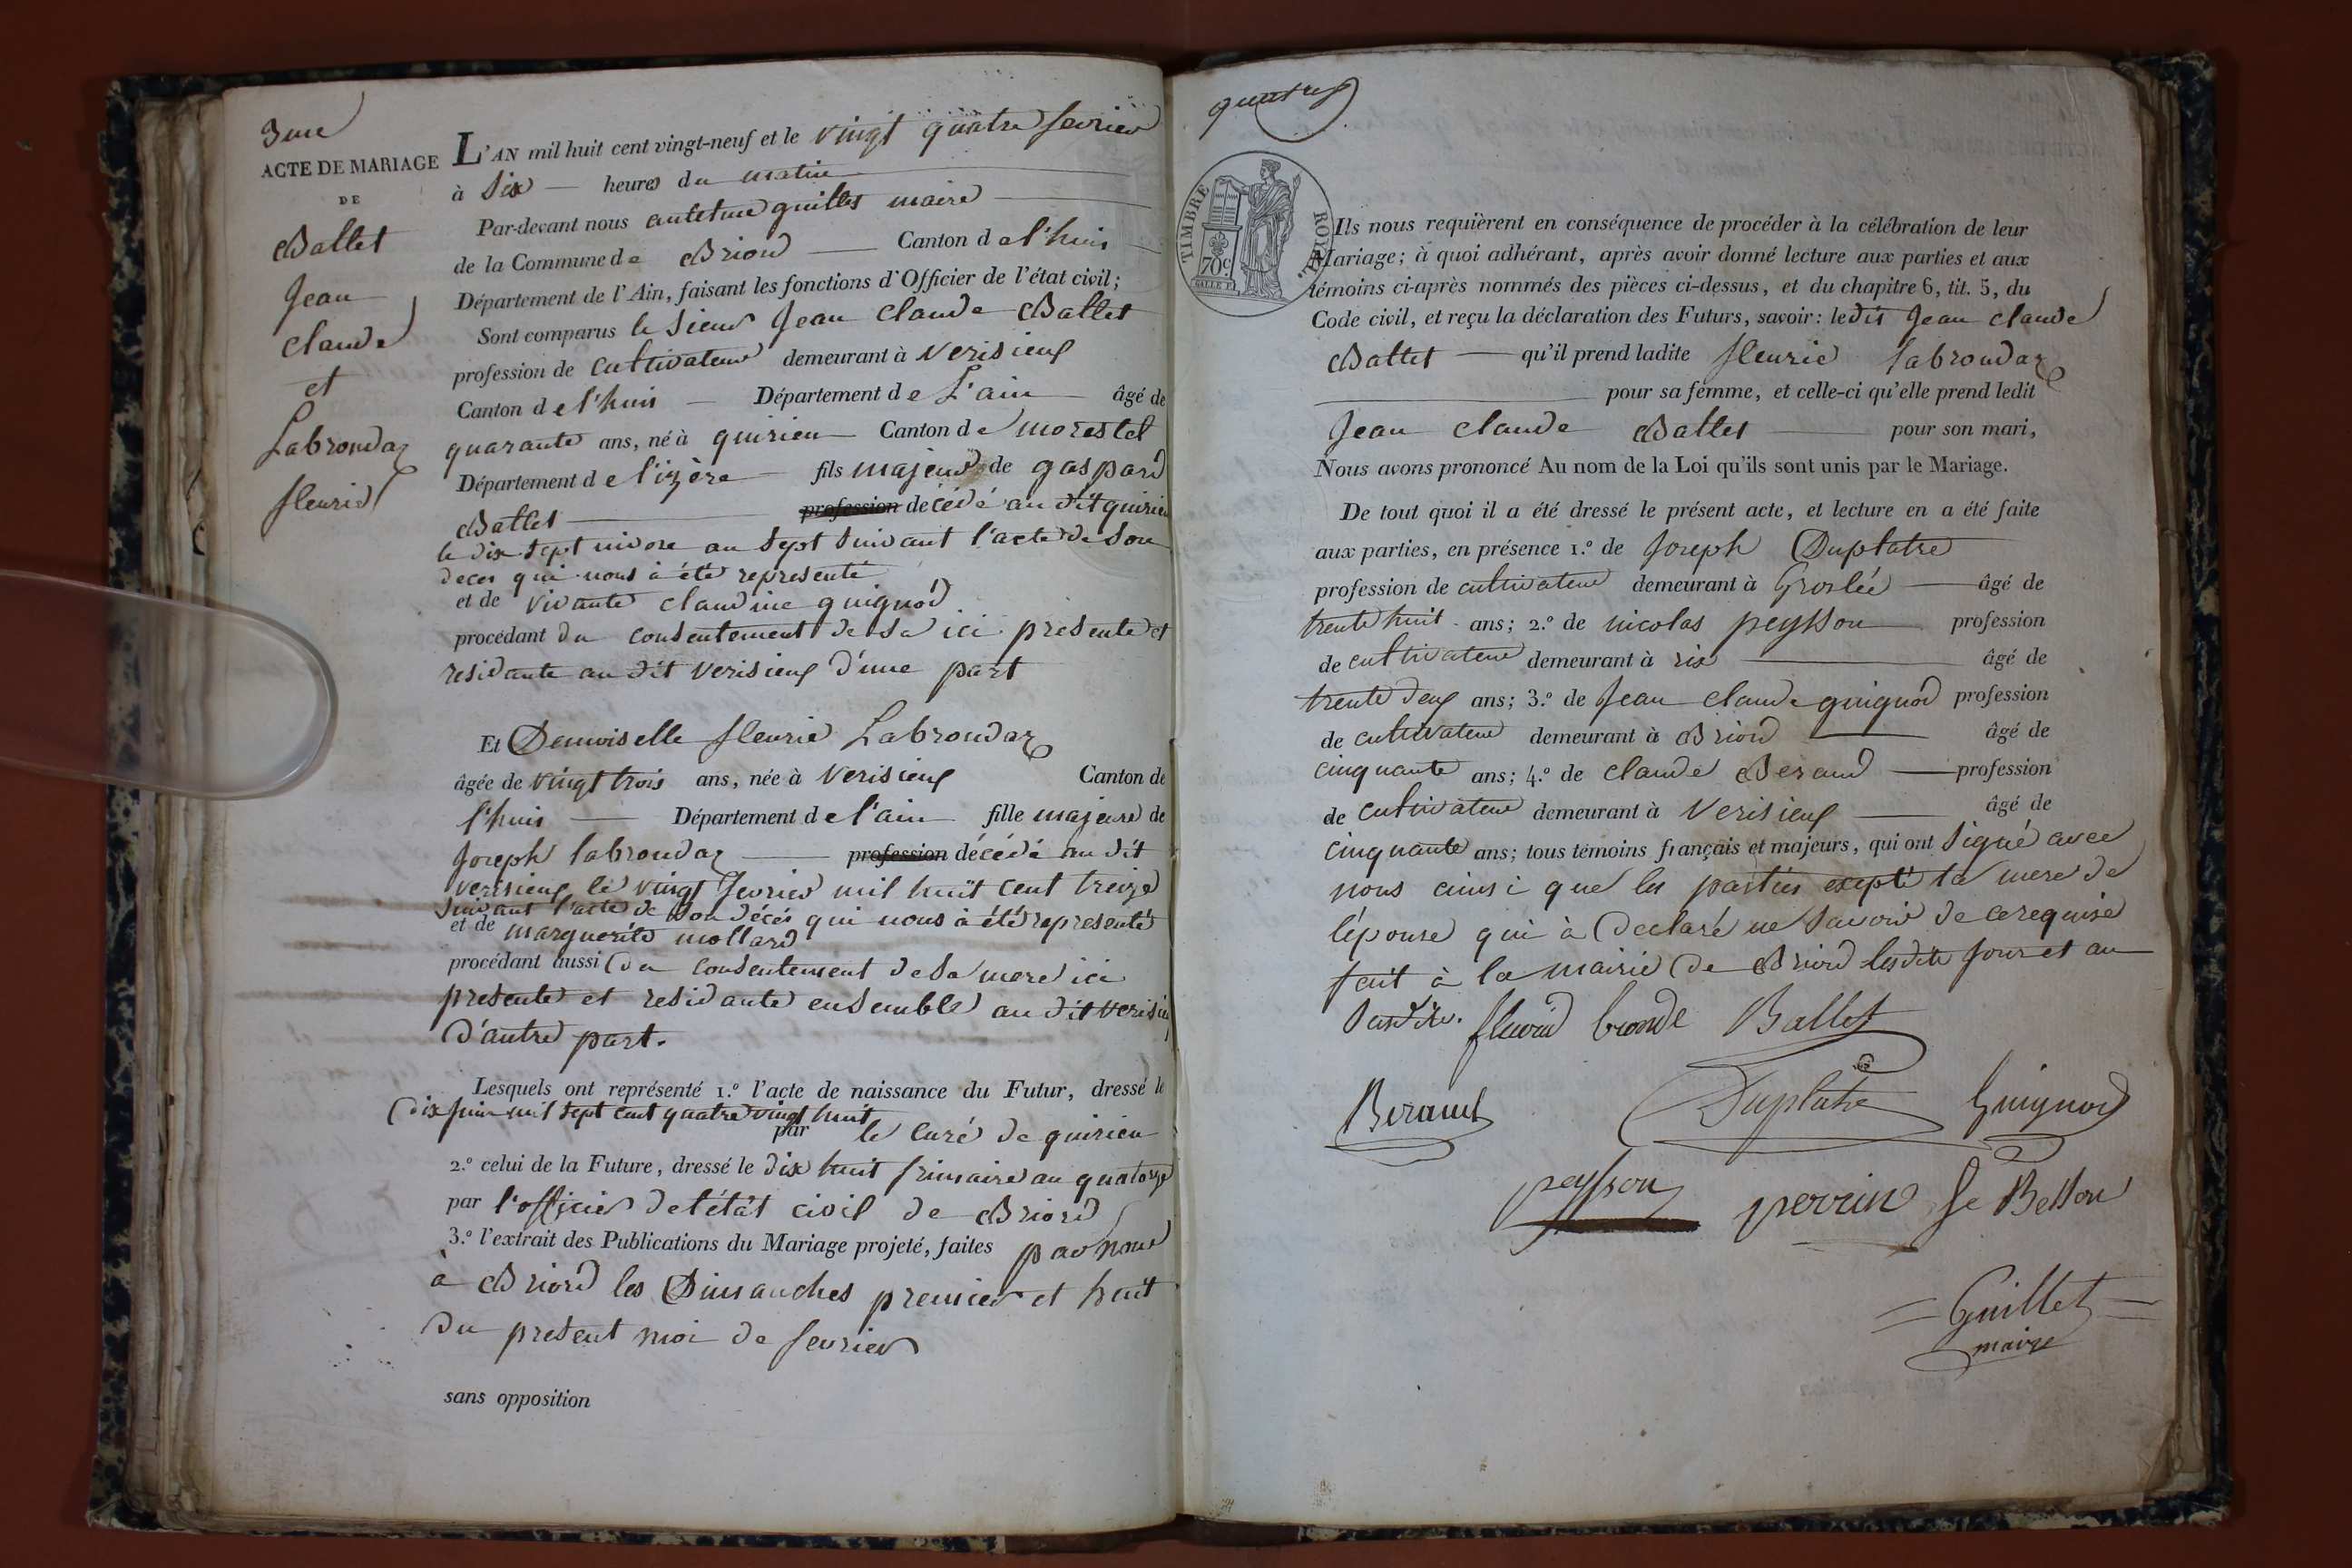 3me
ACTE DE MARIAGE
DE
Ballet
Jean
Claude
et
Labrondaz
fleurie
L'AN mil huit cent vingt-neuf et le vingt quatre fevrier
à Six heures du matin
Par-devant nous antelme guillet maire
de la Commune de Briord Canton de l'huis
Département de l'Ain, faisant les fonctions d'Officier de l'état civil;
Sont comparus le Sieur Jean Claude Ballet
profession de Cultivateur demeurant à Verisieux
Canton de l'huis Département de L'ain âgé de
quarante ans, né à quirieu Canton de morestel
Département de l'izère fils majeur de gaspard
Ballet profession décédé au dit quirieu
le dix sept nivose an Sept Suivant l'acte de Son
deces qui nous à été representé
et de vivante claudine guignod
procédant du consentement de sa ici presente et
residante au dit verisieux d'une part
Et Demoiselle fleurie Labrondaz
âgée de vingt trois ans, née à Verisieux Canton de
l'huis Département de l'ain fille majeure de
Joseph labrondaz profession décédé au dit
verisieux le vingt fevrier mil huit cent treize
Suivant l'acte de Son décés qui nous à été representé
et de marguerite mollard
procédant aussi du consentement de Sa mere ici
presente et residante ensemble au dit verisieu
d'autre part.
Lesquels ont représenté 1.º l'acte de naissance du Futur, dressé le
dix juin mil Sept cent quatre vingt huit
par le Curé de quirieu
2.º celui de la Future, dressé le dix huit frimaire an quatorze
par l'officier de l'état civil de Briord
3.º l'extrait des Publications du Mariage projeté, faites par nous
à Briord les Dimanches premier et huit
du present moi de fevrier
sans opposition
quatre
TIMBRE ROYAL.
70c.
Ils nous requièrent en conséquence de procéder à la célébration de leur
Mariage; à quoi adhérant, après avoir donné lecture aux parties et aux
témoins ci-après nommés des pièces ci-dessus, et du chapitre 6, tit. 5, du
Code civil, et reçu la déclaration des Futurs, savoir: ledit Jean Claude
Ballet qu'il prend ladite fleurie labrondaz
pour sa femme, et celle-ci qu'elle prend ledit
Jean Claude Ballet pour son mari,
Nous avons prononcé Au nom de la Loi qu'ils sont unis par le Mariage.
De tout quoi il a été dressé le présent acte, et lecture en a été faite
aux parties, en présence 1.º de Joseph Duplatre
profession de cultivateur demeurant à Groslée âgé de
trente huit ans; 2.º de nicolas peysson profession
de cultivateur demeurant à rix âgé de
trente deux ans; 3.º de Jean Claude guignod profession
de cultivateur demeurant à Briord âgé de
cinquante ans; 4.º de claude Beraud profession
de cultivateur demeurant à Verisieux âgé de
cinquante ans; tous témoins français et majeurs, qui ont Signé avec
nous ainsi que les parties excepté la mere de
l'épouse qui à Declaré ne Savoir de ce requise
fait à la mairie de Briord lesdits jour et an
Susdits. fleurie bronde Ballet
Beraud Duplatre Guignod
peysson perrin Je Besson
Guillet
maire